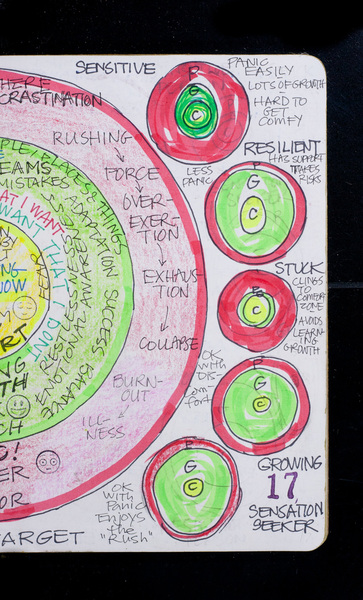 SENSITIVE
PANIC
EASILY
LOTS OF GROWTH
-
HARD TO
GET
COMFY
LESS
PANIC
P
G
C
RESILIENT
HAS SUPPORT
TAKES
RISKS
P
G
C
STUCK
CLINGS
TO
COMFORT
ZONE
AVOIDS
LEARN-
ING
GROWTH
P
G
C
OK
WITH
DIS-
com-
fort
P
G
C
GROWING
17
SENSATION
SEEKER
P
G
C
OK
WITH
Panic
Enjoys
the
"Rush"
HERE
CRASTINATION
RUSHING
FORCE
OVER-
EXER-
TION
EXHAUS-
TION
COLLAPSE
BURN-
OUT
ILL-
NESS
PLACES & THINGS
EAMS
MISTAKES
ADAPTATION SUCCESS
AT I WANT
WANT THAT I DON'T
FEAR
AWARENESS
BALANCE
NOW
RT
NG
TH
CH
O!
ER
OR
TARGET